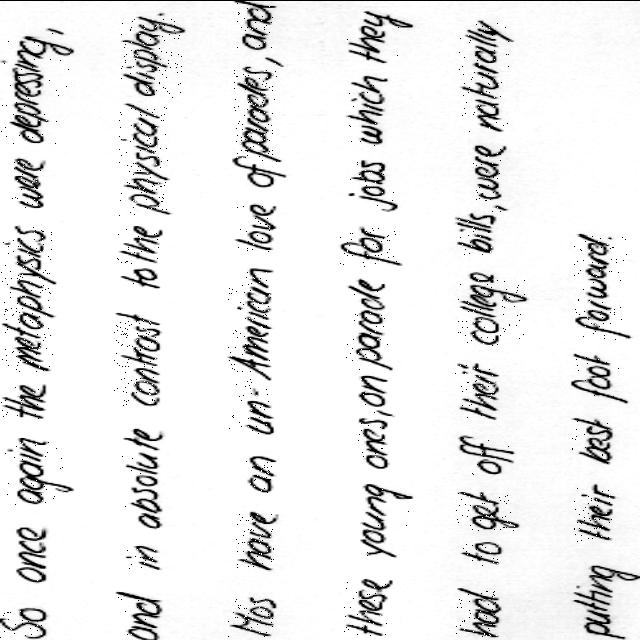 So once again the metaphysics were depressing,
and in absolute contrast to the physical display.
Mos have an un-American love of parades, and
these young ones, on parade for jobs which they
had to get off their college bills, were naturally
putting their best foot forward.